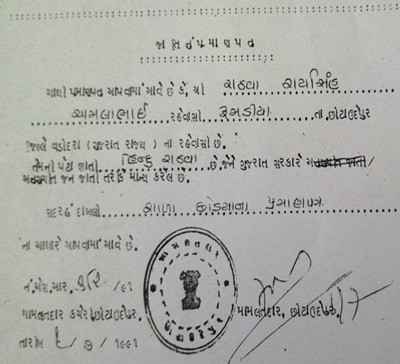 જાતિનું પ્રમાણપત્ર
આથી પ્રમાણપત્ર આપવામાં આવે છે કે, શ્રી રાઠવા રાયસિંહ
અમલાભાઈ રહેવાસી રૂમડીયા તા. છોટાઉદેપુર
જિલ્લે વડોદરા (ગુજરાત રાજ્ય) ના રહેવાસી છે.
તેમની પેટા જાતી હિન્દુ રાઠવા છે. જેને ગુજરાત સરકારે
જન જાતી તરીકે માન્ય કરેલ છે.
સદરહું દાખલો શાળા છોડયાના પ્રમાણપત્ર
ના આધારે આપવામાં આવે છે.
નં. એમ.આર. /૯૧
મામલતદાર કચેરી, છોટાઉદેપુર. મામલતદાર, છોટાઉદેપુર.
તારીખ / ૭ / ૧૯૯૧